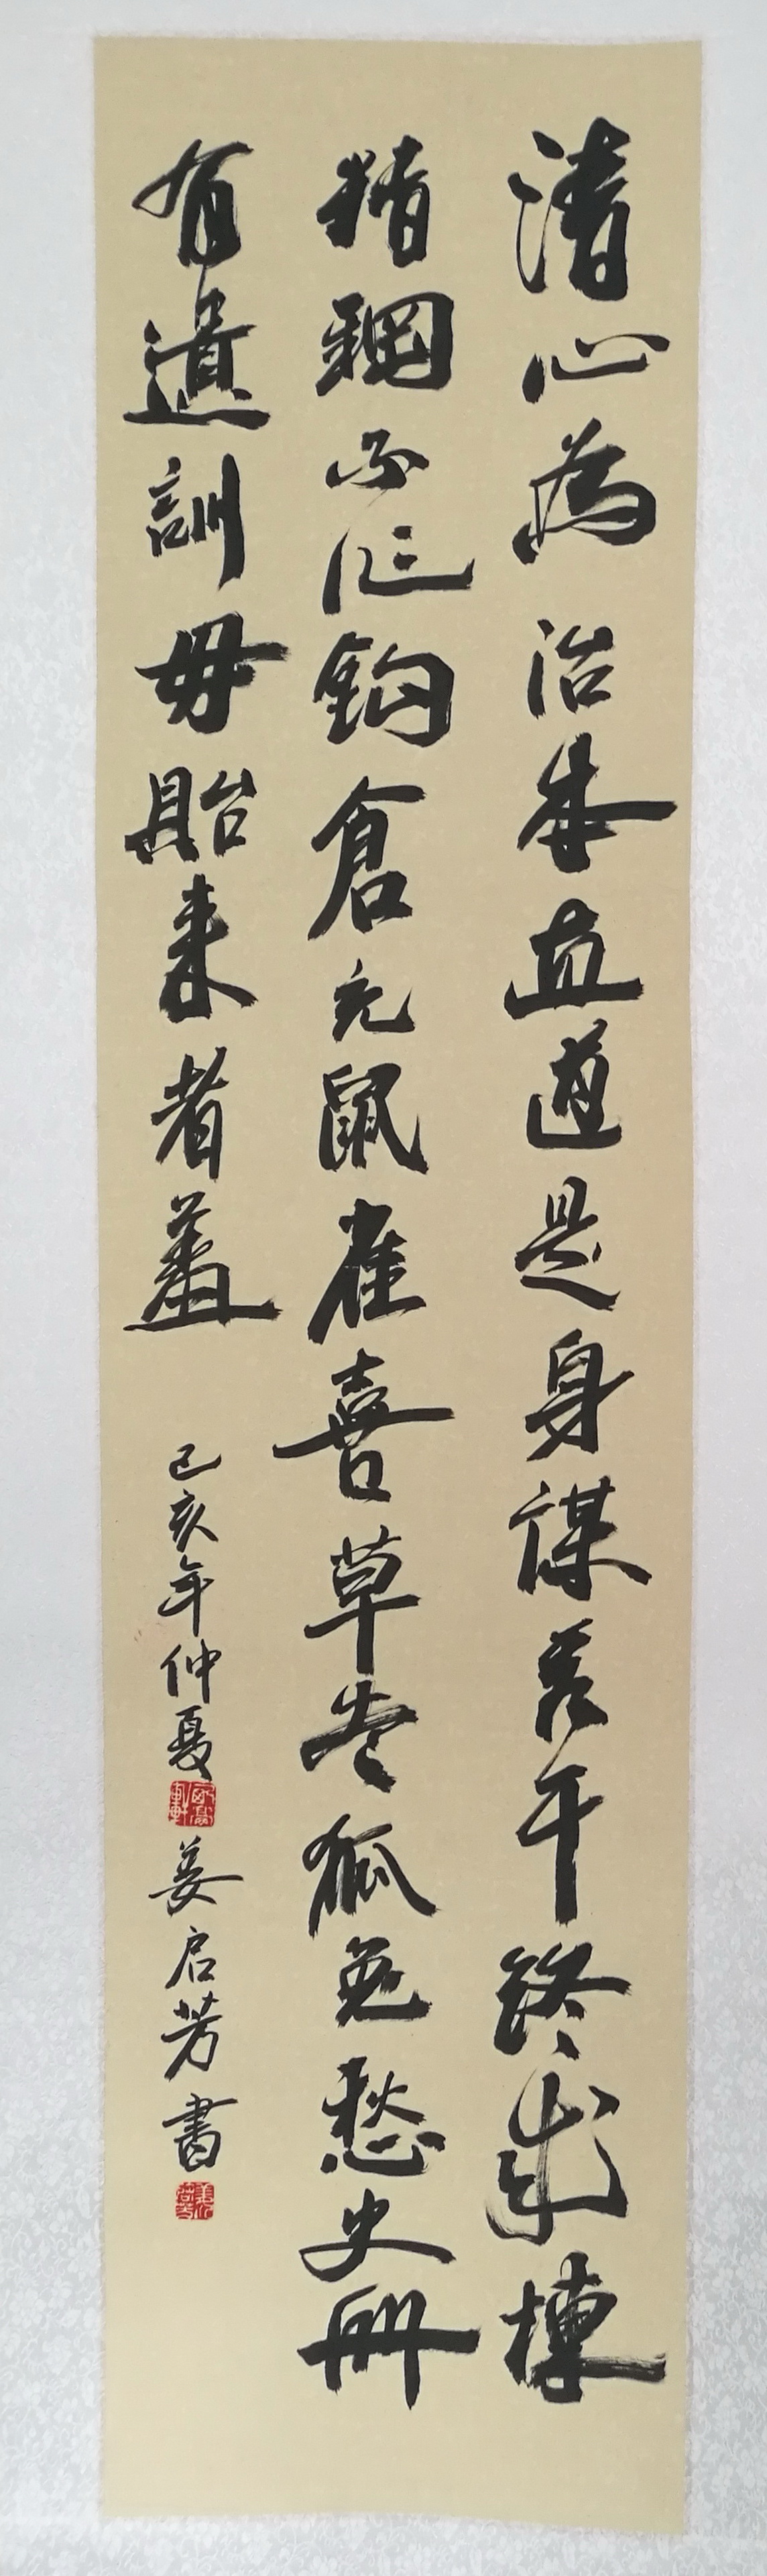 清心为治本直道是身谋秀干终成栋
精鋼不作鈎倉充鼠雀喜草尽狐兔愁史册
有遺訓毋貽来者羞
己亥年仲夏
姜启芳書